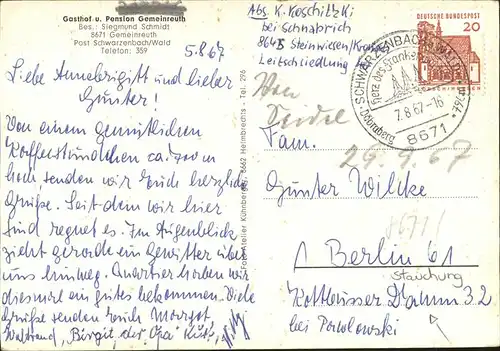 Gasthof u. Pension Gemeinreuth
Bes.: Siegmund Schmidt
8671 Gemeinreuth
Post Schwarzenbach/Wald
Telefon: 359
5.8.67
Liebe Annebrigitt und lieber
Günter!
Von einem gemütlichen
Kaffeestündchen ca. 700 m
hoch senden wir Euch herzliche
Grüße. Seit dem wir hier
sind regnet es. Im Augenblick
zieht gerade ein Gewitter über
uns hinweg. Quartier haben wir
diesmal ein gutes bekommen. Viele
Grüße senden Euch Margot
Waltraud, "Birgit der Opa" Kurt,
Foto-Atelier Künnberger, 8662 Helmbrechts - Tel. 296
Abs. K. Koschitzki
bei Schnabrich
8641 Steinwiesen/Kronach
Leitschliedlung
SCHWARZENBACH a. WALD
Herz des Frankenwaldes
7.8.67-16
Döbraberg 794m
8671
DEUTSCHE BUNDESPOST
20
LORSCH/HESSEN
Von
Seidel
29.9.67
Fam.
Günter Wilcke
8671/
1 Berlin 61
Stauchung
Kottbusser Damm 32
bei Pawlowski